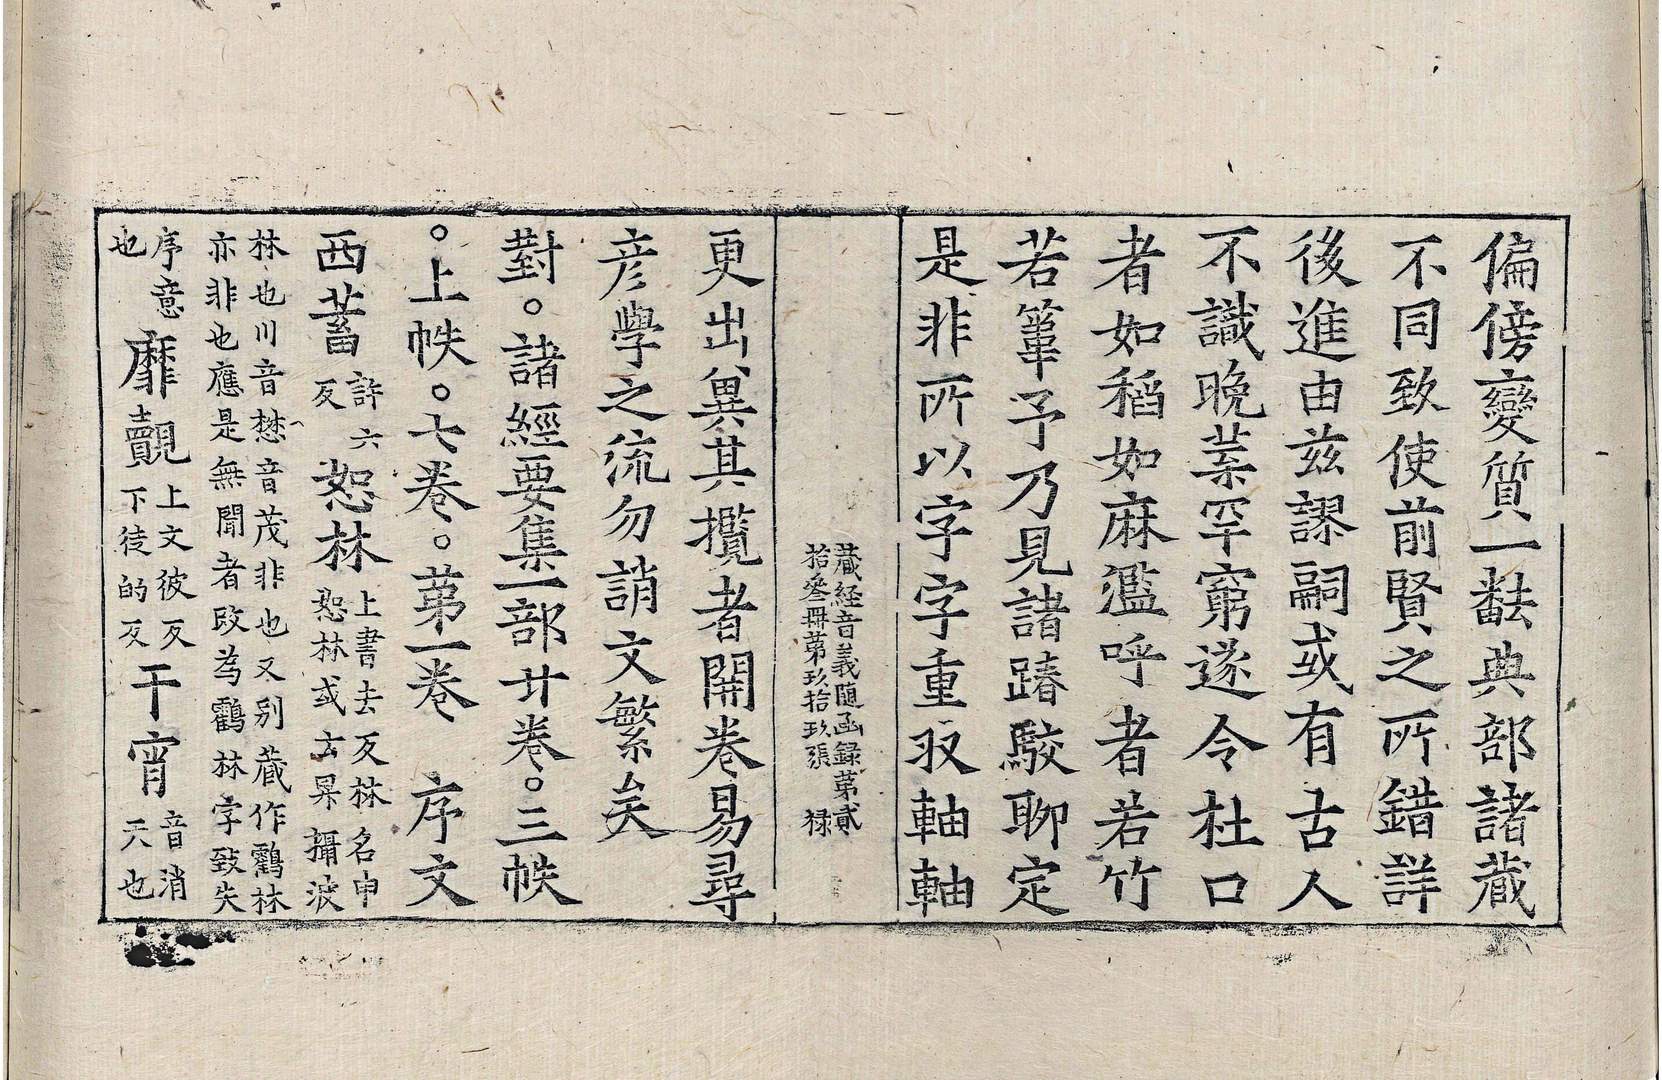 偏傍變質一翻典部諸藏
不同致使前賢之所錯詳
後進由玆謬嗣或有古人
不識晚菜罕窮遂令杜口
者如稻如麻濫呼者若竹
若葦予乃見諸踳駮聊定
是非所以字字重取軸軸
藏経音義隨函録第貳
拾叄冊第玖拾玖張 禄
更出兾其攬者開卷易尋
彦學之流勿誚文繁矣
對。諸經要集一部廿卷。三帙
。上帙。七卷。第一卷 序文
西蓄許六反恕林上書去反林名申恕林或云昇攝波
林也川音㮊音茂非也又別藏作鸖林
亦非也應是無聞者改為鸖林字致失
序意也靡覿上文彼反下徒的反干宵音消天也